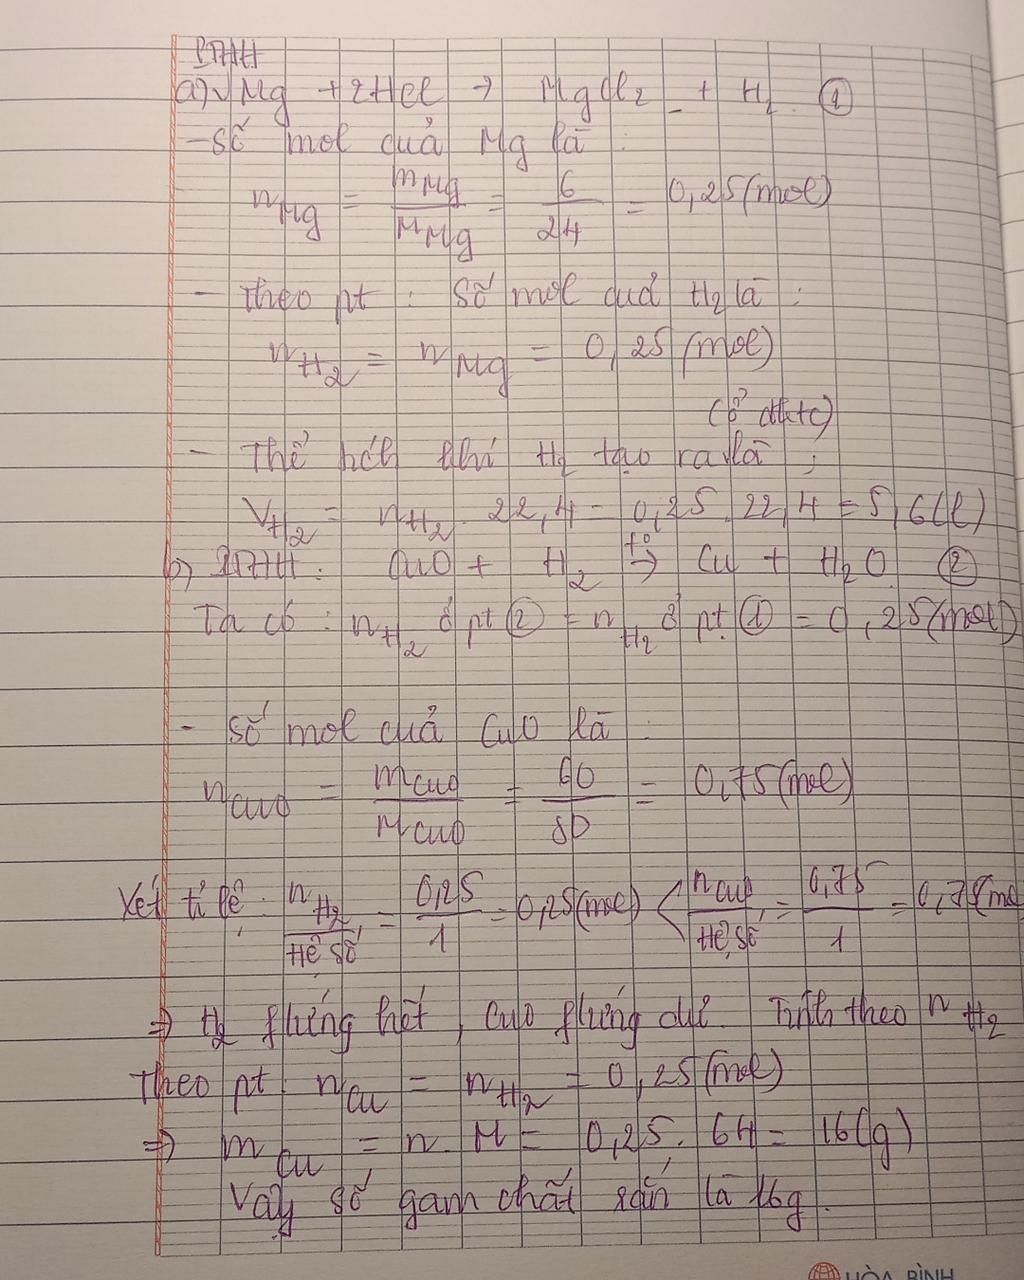 PTHH
a) Mg + 2HCl → MgCl2 + H2 ①
- số mol quả Mg là :
nMg = mMg / MMg = 6 / 24 = 0,25 (mol)
- Theo pt : Số mol quả H2 là :
nH2 = nMg = 0,25 (mol)
(ở đktc)
- Thể tích khí H2 tạo ra là :
VH2 = nH2 . 22,4 = 0,25 . 22,4 = 5,6 (l)
b) PTHH : CuO + H2 t° → Cu + H2O ②
Ta có : nH2 ở pt ② = nH2 ở pt ① = 0,25 (mol)
- số mol quả CuO là :
nCuO = mCuO / MCuO = 60 / 80 = 0,75 (mol)
Xét tỉ lệ : nH2 / Hệ số = 0,25 / 1 = 0,25 (mol) < nCuO / Hệ số = 0,75 / 1 = 0,75 (mol
⇒ H2 phứng hết , CuO phứng dư. Tính theo nH2
Theo pt : nCu = nH2 = 0,25 (mol)
⇒ mCu = n . M = 0,25 . 64 = 16 (g)
Vậy số gam chất rắn là 16g.
HÒA BÌNH